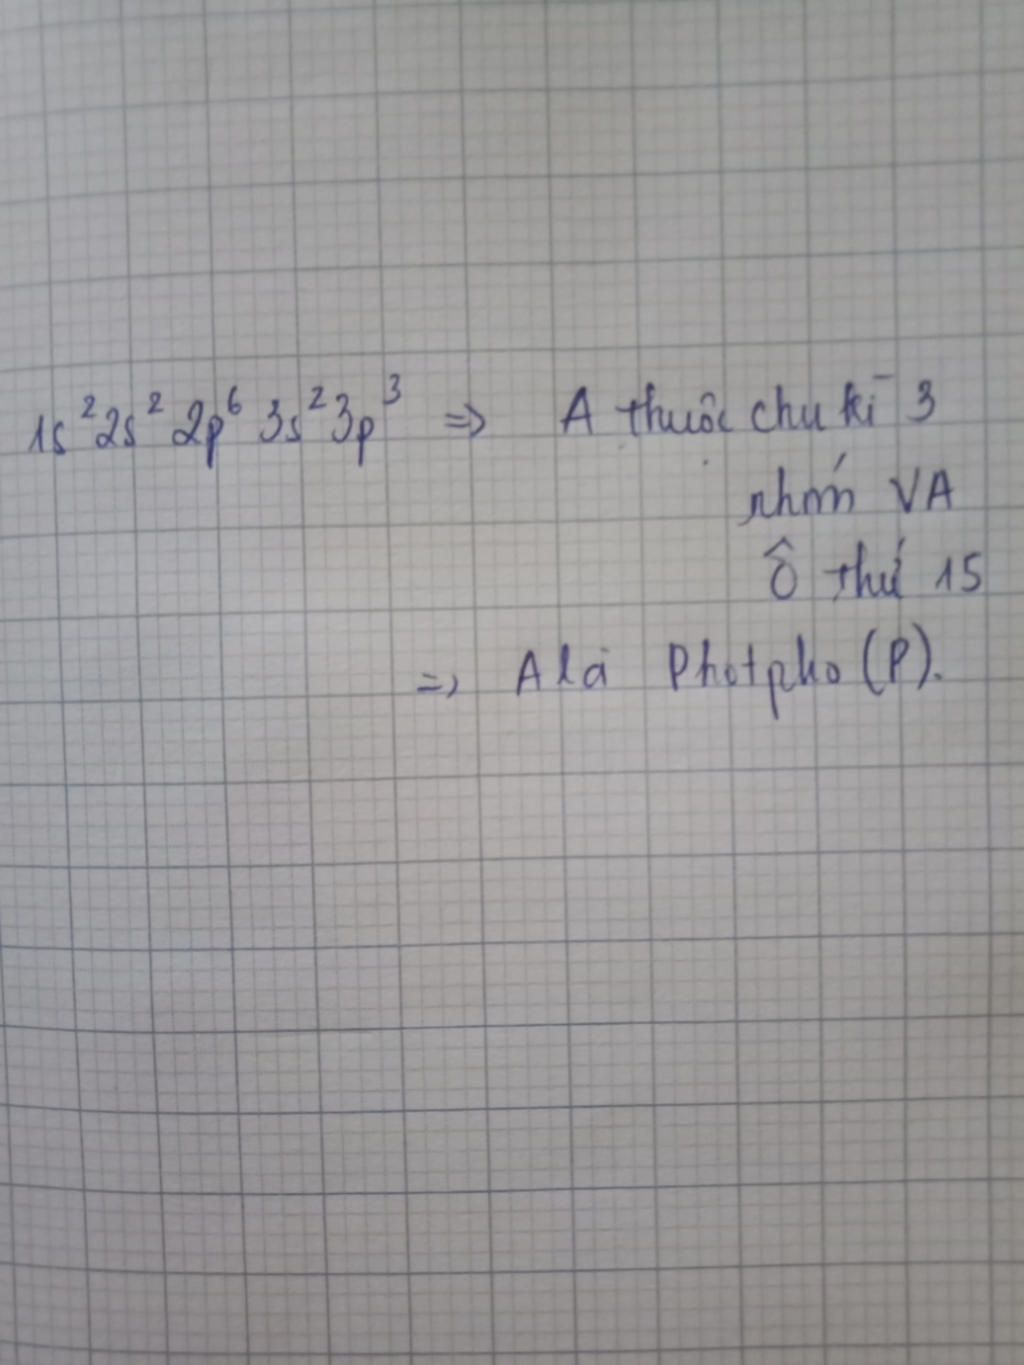 1s² 2s² 2p⁶ 3s² 3p³ => A thuộc chu kì 3
nhóm VA
Ô thứ 15
=> A là Photpho (P).